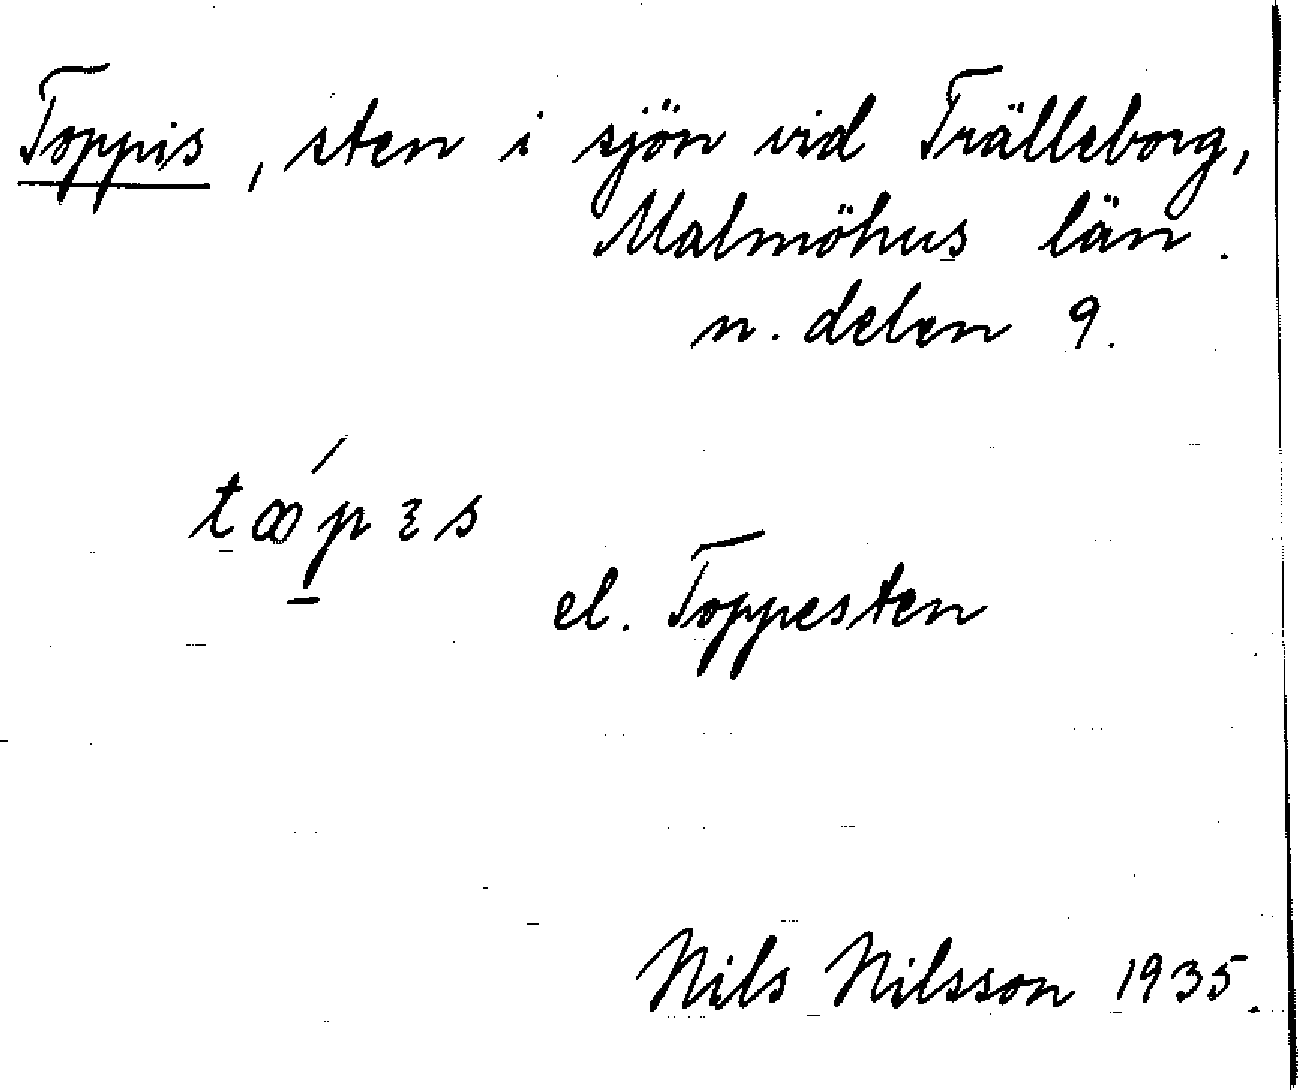 Toppis, sten i sjön vid Trälleborg,
Malmöhus län.
n. delen 9.
el. Toppesten
Nils Nilsson 1935.